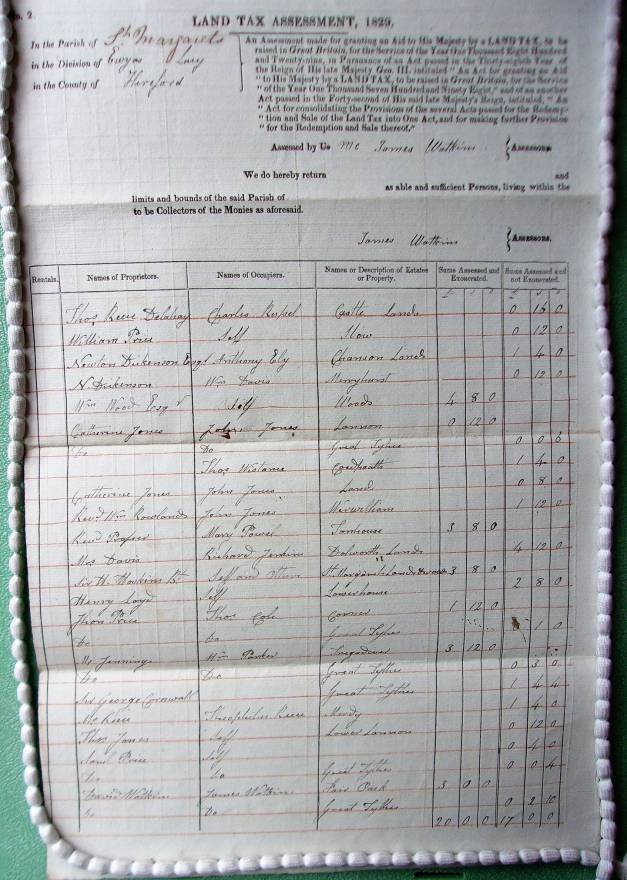 No. 2.
LAND TAX ASSESSMENT, 1829.
In the Parish of St Margarets
in the Division of Ewyas Lacy
in the County of Hereford
An Assessment made for granting an Aid to His Majesty by a LAND TAX, to be
raised in Great Britain, for the Service of the Year One Thousand Eight Hundred
and Twenty-nine, in Pursuance of an Act passed in the Thirty-eighth Year of
the Reign of His late Majesty Geo. III. intituled "An Act for granting an Aid
"to His Majesty by a LAND TAX, to be raised in Great Britain, for the Service
"of the Year One Thousand Seven Hundred and Ninety Eight," and of another
Act passed in the Forty-second of His said late Majesty's Reign, intituled, "An
"Act for consolidating the Provisions of the several Acts passed for the Redemp-
"tion and Sale of the Land Tax into One Act, and for making further Provision
"for the Redemption and Sale thereof."
Assessed by Us Me James Watkins ASSESSORS
We do hereby return and
as able and sufficient Persons, living within the
limits and bounds of the said Parish of
to be Collectors of the Monies as aforesaid.
James Watkins ASSESSORS.
Rentals. Names of Proprietors. Names of Occupiers. Names or Description of Estates or Property. Sums Assessed and Exonerated. Sums Assessed and not Exonerated.
Thos Charles Castle Lands 0 16 0
William Price Self 0 12 0
Newton Dickenson Esqr Anthony Ely Chanson Lands 1 4 0
N. Dickenson Wm Davis Merryhurst 0 12 0
Wm Wood Esqr Self Woods 4 8 0
Catherine Jones John Jones Lannon 0 12 0
Do Do Great Tythes 0 0 6
Thos 1 4 0
Catherine Jones John Jones Land 0 8 0
Revd Wm Rowlands John Jones 1 12 0
Revd Prosser Mary Powel Tanhouse 3 8 0
Mrs Davis Richard Jenkins Lands 4 12 0
Sir H. Hoskins Bt Self and Others St Margarets Lands 3 8 0
Harry Loyd Self Lowerhouse 2 8 0
Price Thos Cole Corner 1 12 0
Do Do Great Tythes 1 0
Mr Jennings Wm Parker 3 12 0
Do Do Great Tythes 0 3 0
Sir George Cornwall Great Tythes 1 4 4
Mc Theophilus 1 4 0
Thos Jones Self Lower Lannon 0 12 0
Saml Price Self 0 4 0
Do Do Great Tythes 0 0 4
David Watkins James Watkins Park 3 0 0
Do Do Great Tythes 0 2 10
20 0 0 17 0 0